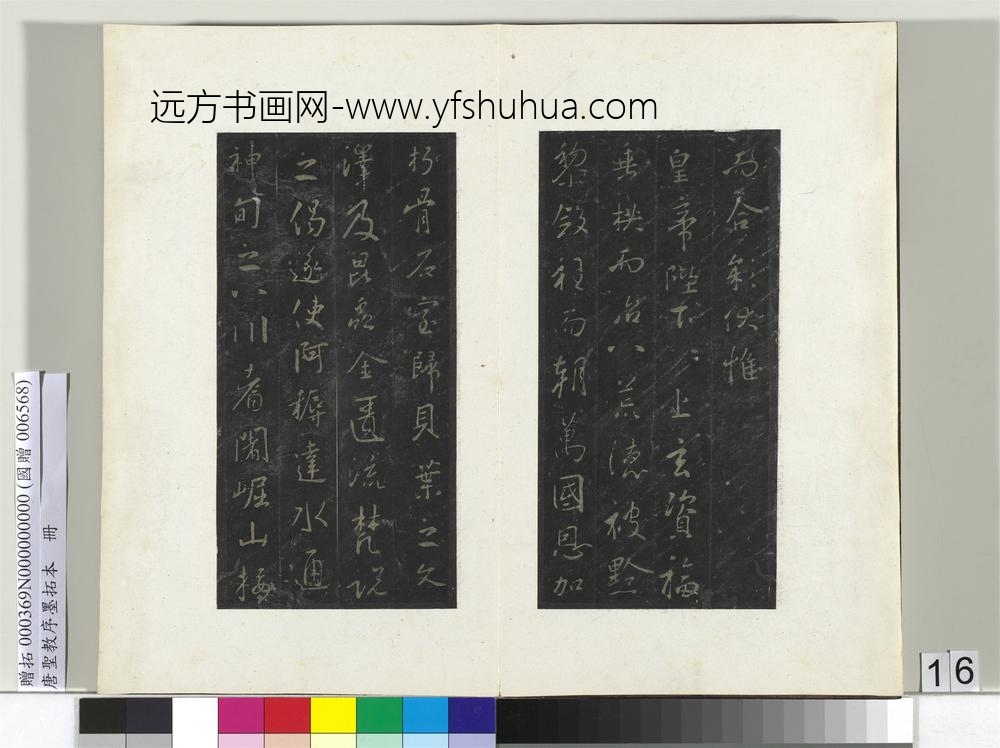 远方书画网-www.yfshuhua.com
而合彩伏惟
皇帝陛下上玄資福
垂拱而治八荒德被黔
黎斂衽而朝萬國恩加
朽骨石室歸貝葉之文
澤及昆蟲金匱流梵說
之偈遂使阿耨達水通
神甸之八川耆闍崛山接
贈拓 000369N000000000 (國贈 006568)
唐聖教序墨拓本 冊
16